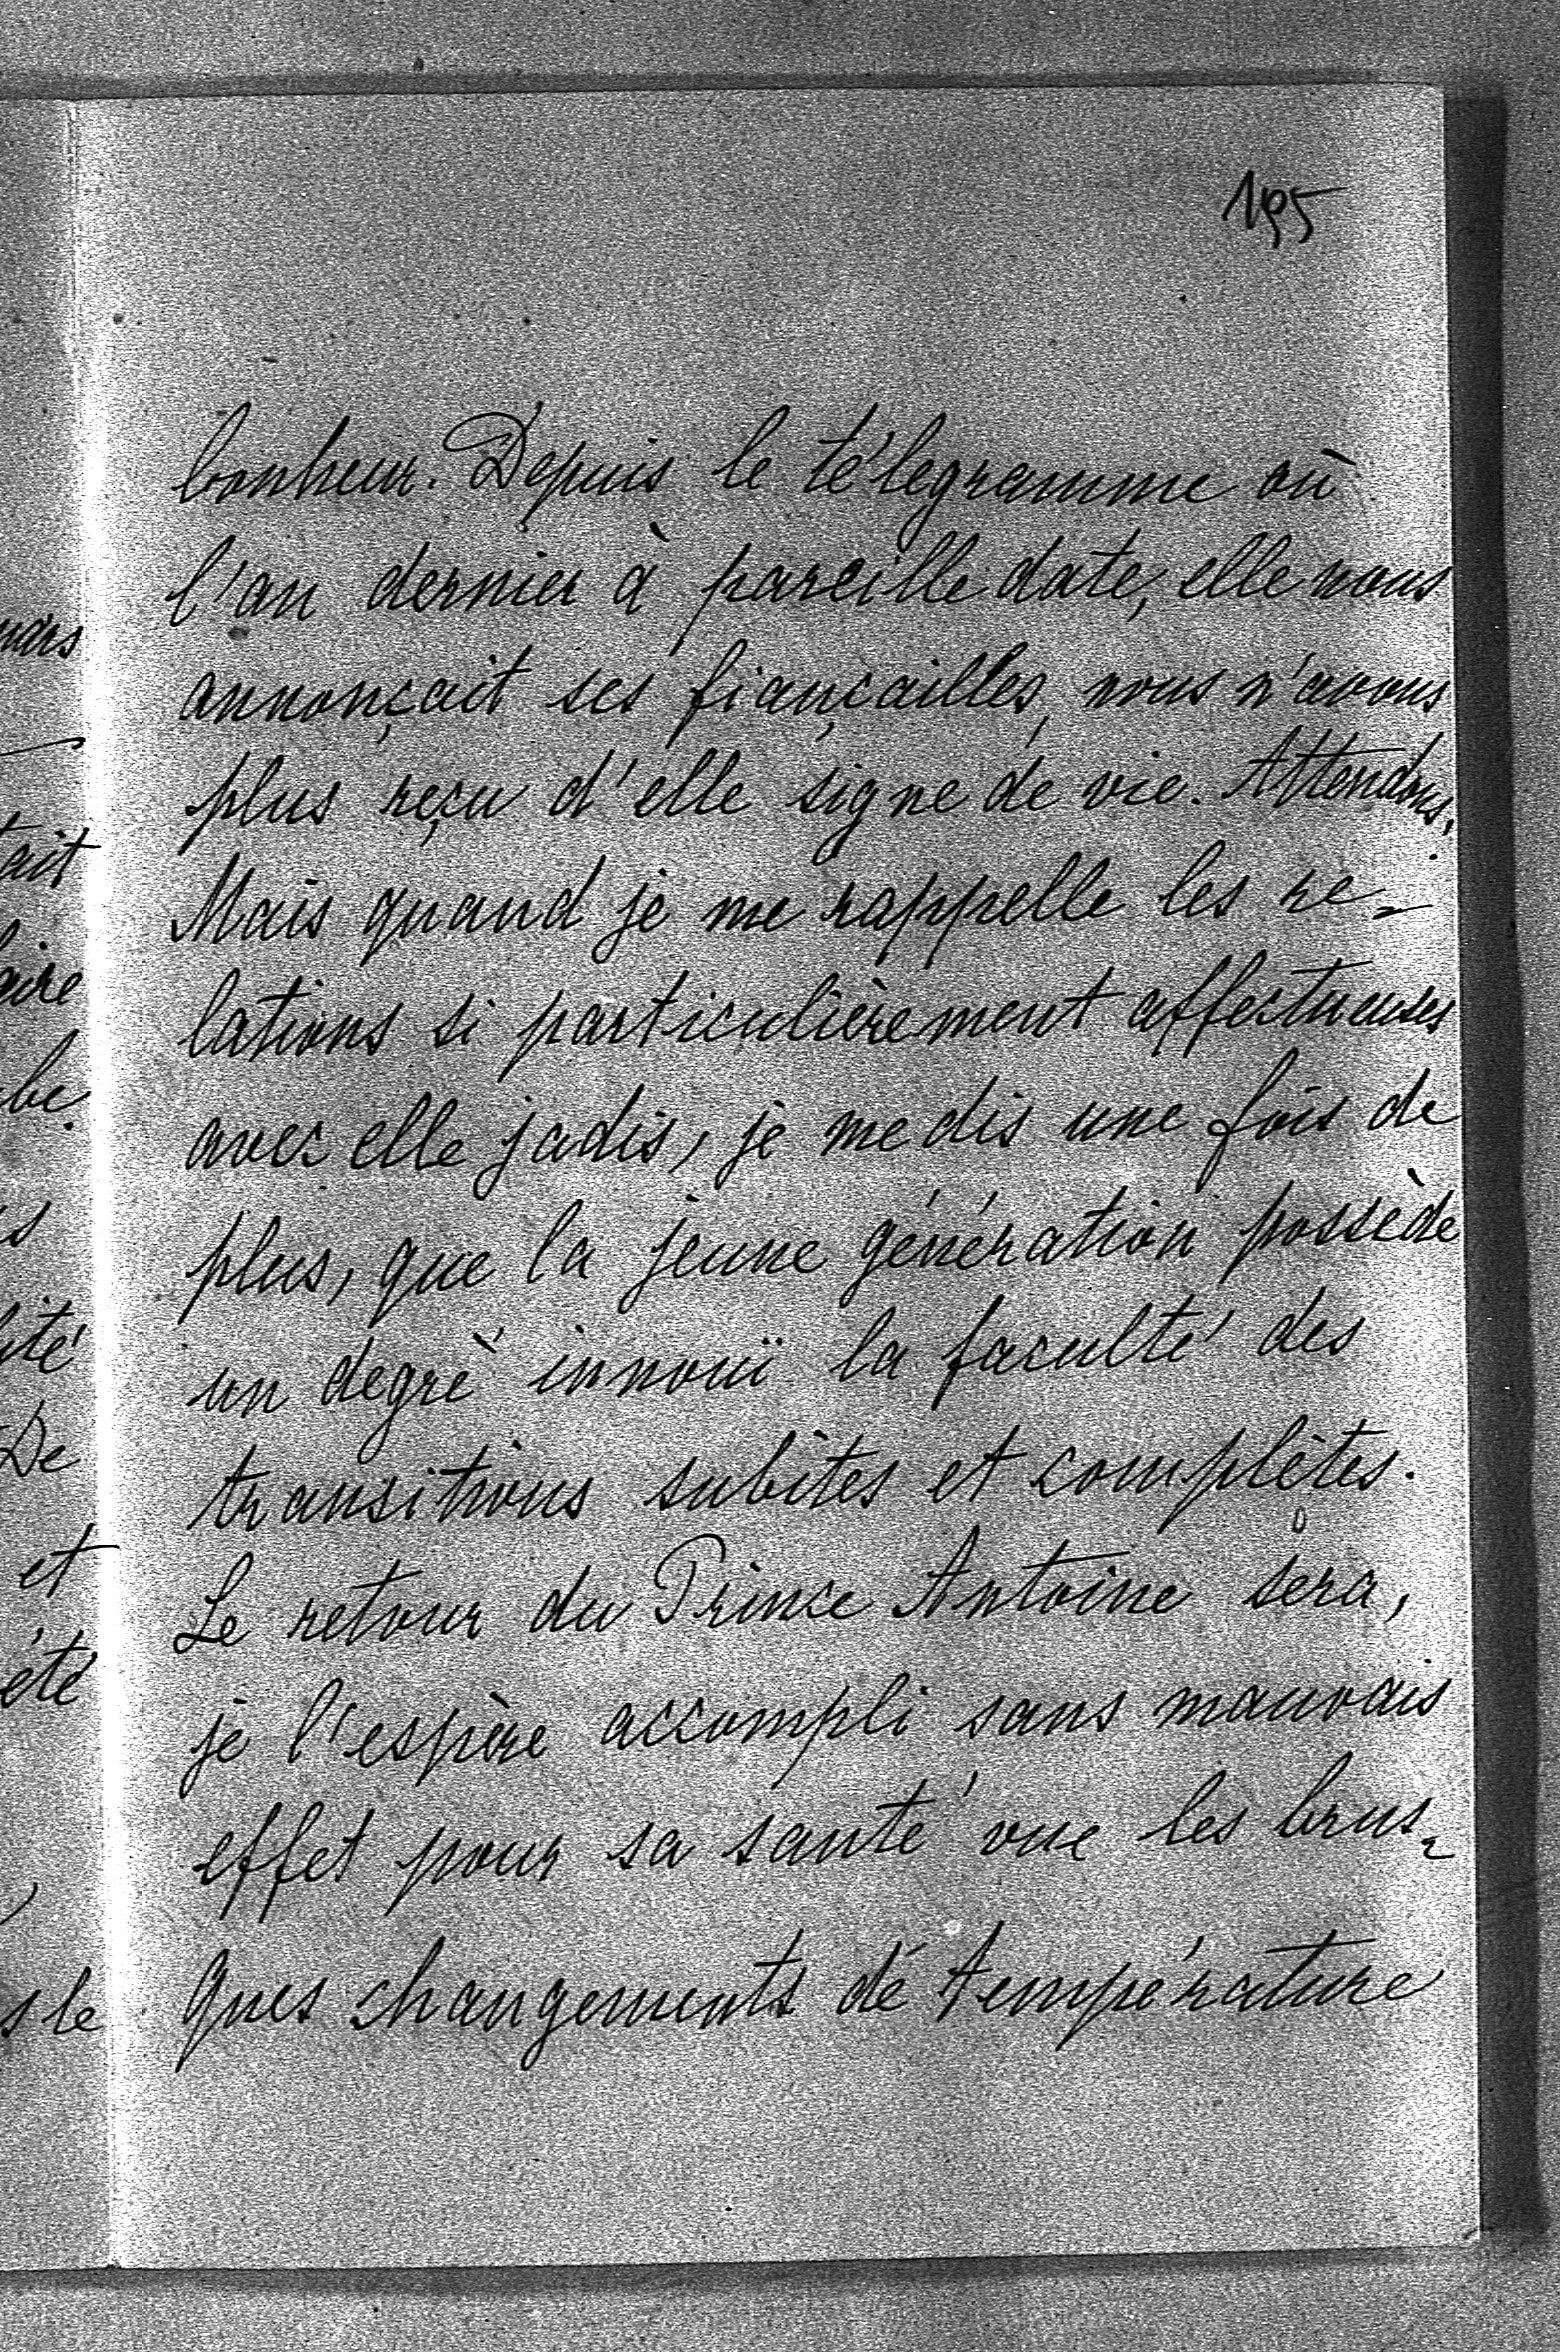 195
bonheur. Depuis le télegramme où
l'an dernier à pareille date, elle nous
annonçait ses fiançailles, nous n'avons
plus reçu d'elle signe de vie. Attendons.
Mais quand je me rappelle les re-
lations si particulièrement affectueuses
avec elle jadis, je me dis une fois de
plus, que la jeune génération possède
un degrè innouï la faculté des
transitions subites et complètes.
Le retour du Prince Antoine sera,
je l'espère accompli sans mauvais
effet pour sa santé vue les brus-
ques changements de température
ait
aire
be.
ité
De
et
été
s le